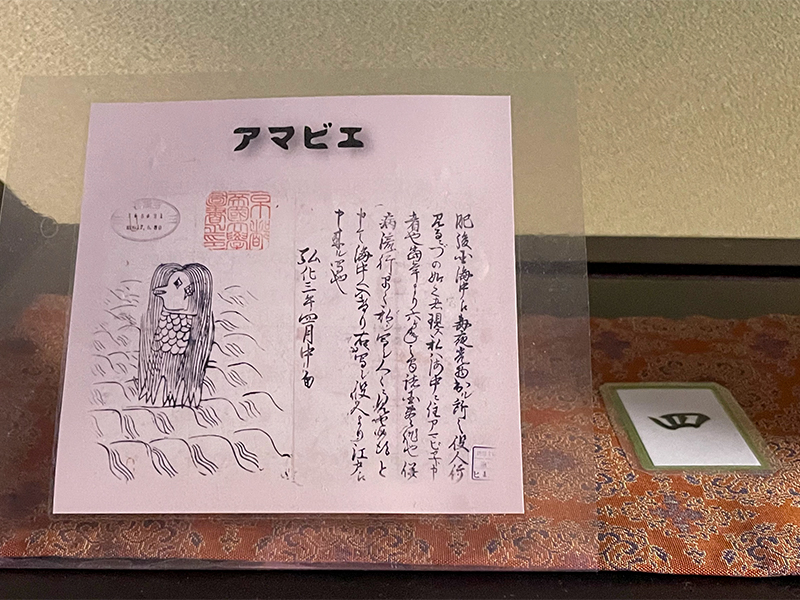 アマビエ
京都
帝國大學
圖書之印
肥後国海中え毎夜光物出ル所之役人行
見るニづの如く者現ス私ハ海中ニ住アマビヱト申
者也当年より六ヶ年之間諸国豊作也併
病流行早々私ヲ写シ人々ニ見セ候得と
申て海中へ入けり右写シ役人より江戸え
申来ル写也
弘化三年四月中旬
四